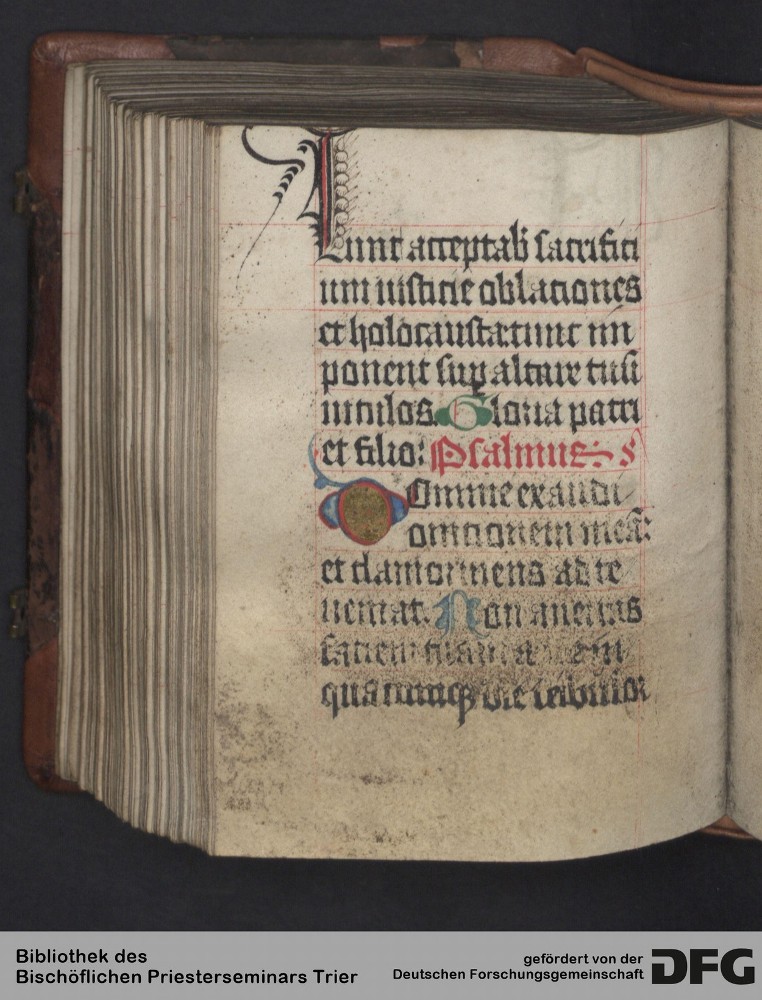 Tunc acceptab sacrifici
um iusticie oblationes
et holocausta: tunc im
ponent sup altare tuū
uitulos. Gloria patri
et filio: Psalmus
Domine exaudi
orationem meā:
et clamor meus ad te
ueniat. Non auertas
faciem tuam a me in
quacumq die tribulor
Bibliothek des
Bischöflichen Priesterseminars Trier
gefördert von der
Deutschen Forschungsgemeinschaft
DFG